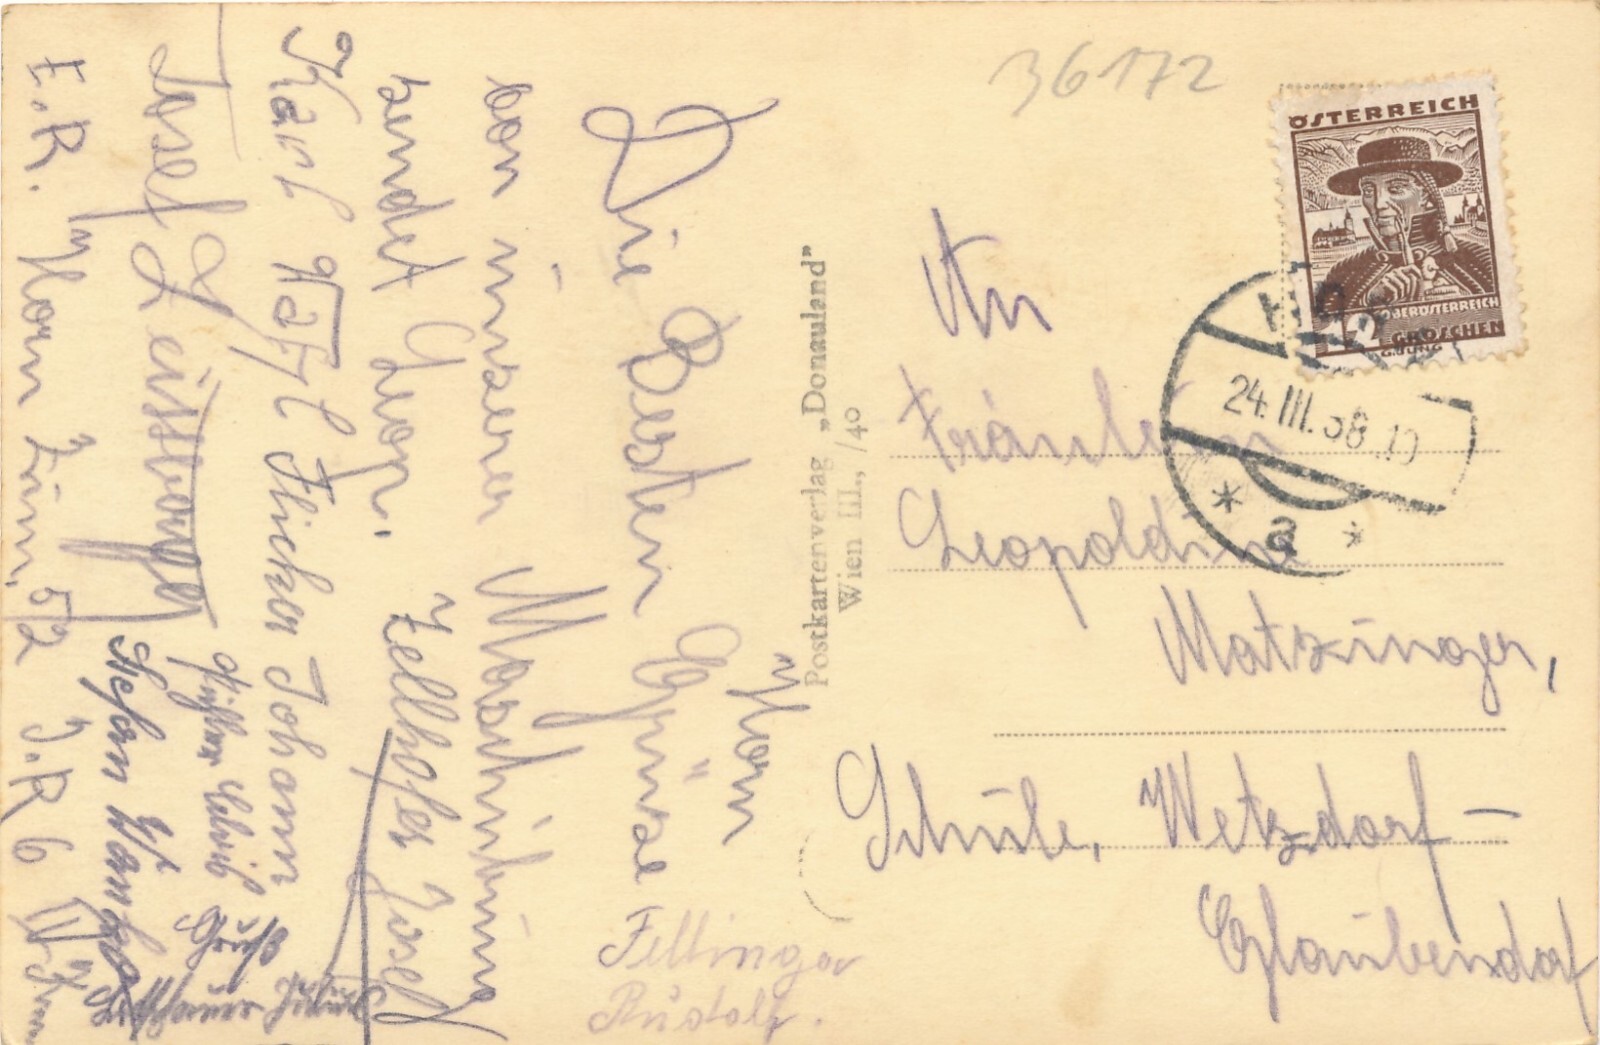 36172
ÖSTERREICH
OBERÖSTERREICH
12 GROSCHEN
G.JUNG
24.III.38.10
* a *
An
Fräulein
Leopoldine
Matzinger,
Schule, Wetzdorf-
Glaubendorf
Postkartenverlag „Donauland"
Wien III., /40
Horn
Die Besten Grüsse
von unserer Ausübung
sendet Georg.
Zellhofer Josef
Karl Flicker Johann
Josef
E.R. Horn Zim. 52 J.R 6
Stefan
Gruß
Fellinger
Rudolf.